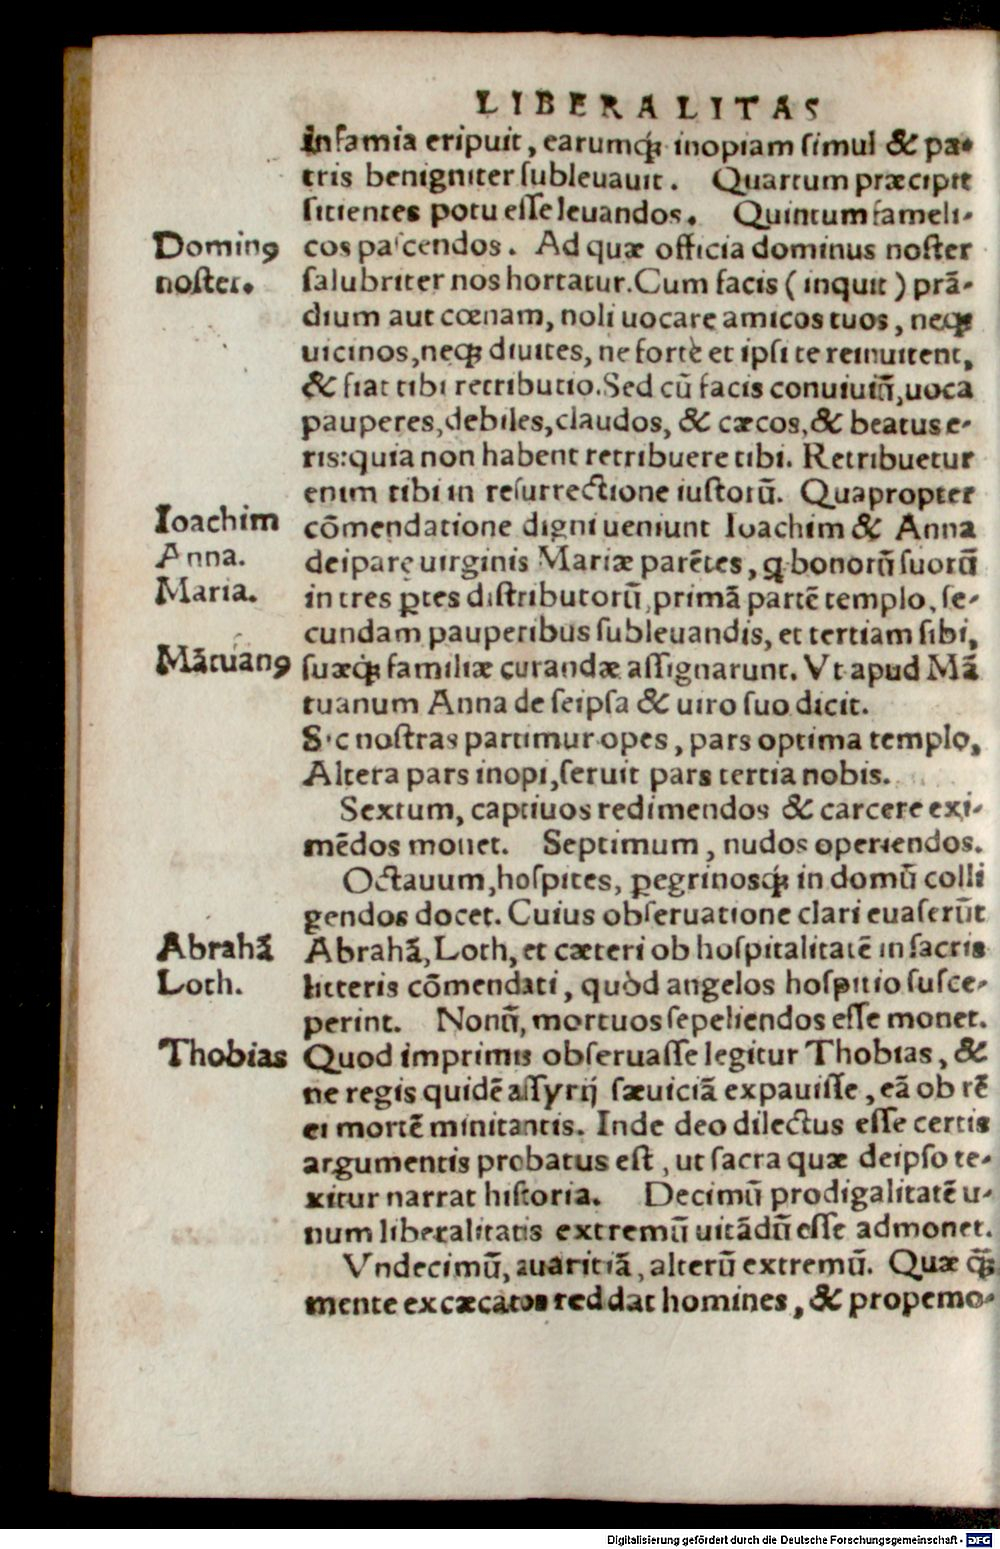 LIBERALITAS
infamia eripuit, earumq́ꝫ inopiam ſimul & pa-
tris benigniter ſubleuauit. Quartum præcipit
ſitientes potu eſſe leuandos. Quintum fameli-
Dominꝰ
noſter.
cos paſcendos. Ad quæ officia dominus noſter
ſalubriter nos hortatur. Cum facis (inquit) prã-
dium aut cœnam, noli uocare amicos tuos, neqꝫ
uicinos, neqꝫ diuites, ne fortè et ipſi te reinuitent,
& fiat tibi retributio. Sed cũ facis conuiuiũ, uoca
pauperes, debiles, claudos, & cæcos, & beatus e-
ris: quia non habent retribuere tibi. Retribuetur
enim tibi in reſurrectione iuſtorũ. Quapropter
Ioachim
Anna.
Maria.
cõmendatione digni ueniunt Ioachim & Anna
deiparę uirginis Mariæ parẽtes, ꝗ bonorũ ſuorũ
in tres ꝑtes diſtributorũ, primã partẽ templo, ſe-
cundam pauperibus ſubleuandis, et tertiam ſibi,
Mãtuanꝰ
ſuæq́ꝫ familiæ curandæ aſſignarunt. Vt apud Mã
tuanum Anna de ſeipſa & uiro ſuo dicit.
Sic noſtras partimur opes, pars optima templo,
Altera pars inopi, ſeruit pars tertia nobis.
Sextum, captiuos redimendos & carcere exi-
mẽdos monet. Septimum, nudos operiendos.
Octauum, hoſpites, ꝑegrinosq́ꝫ in domũ colli
gendos docet. Cuius obſeruatione clari euaſerũt
Abrahã
Loth.
Abrahã, Loth, et cæteri ob hoſpitalitatẽ in ſacris
litteris cõmendati, quòd angelos hoſpitio ſuſce-
perint. Nonũ, mortuos ſepeliendos eſſe monet.
Thobias
Quod imprimis obſeruaſſe legitur Thobias, &
ne regis quidẽ aſſyrij ſæuiciã expauiſſe, eã ob rẽ
ei mortẽ minitantis. Inde deo dilectus eſſe certis
argumentis probatus eſt, ut ſacra quæ de ipſo te-
xitur narrat hiſtoria. Decimũ prodigalitatẽ u-
num liberalitatis extremũ uitãdũ eſſe admonet.
Vndecimũ, auaritiã, alterũ extremũ. Quæ q̃ꝫ
mente excæcatos reddat homines, & propemo-
Digitalisierung gefördert durch die Deutsche Forschungsgemeinschaft - DFG